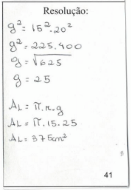 Resolução:
g² = 15² . 20²
g² = 225 . 400
g = √625
g = 25
AL = π . r . g
AL = π . 15 . 25
AL = 375cm²
41